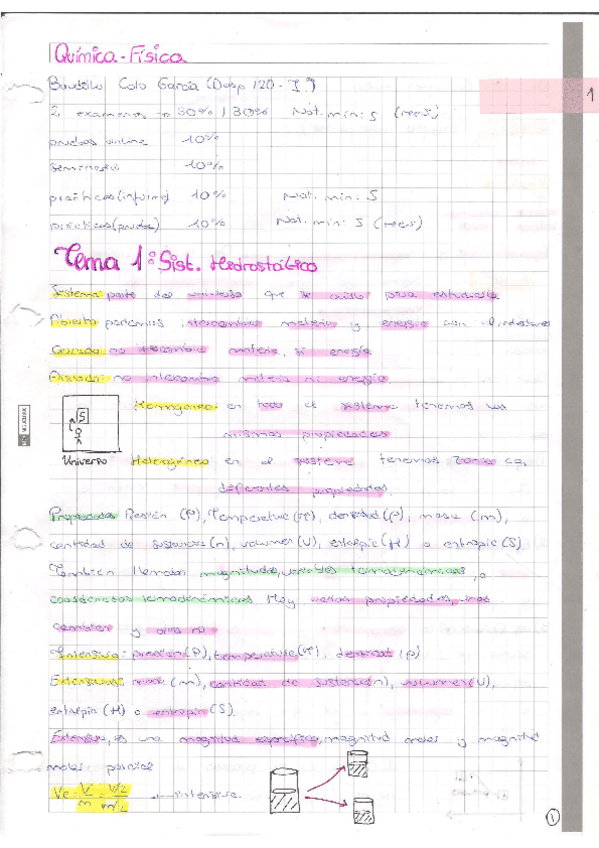 Química-Física
1
2 examenes → 50% / 30% Not. min: 5 (rec 5)
pruebas online 10%
seminarios 10%
prácticas (informe) 10% Not. min: 5
prácticas (prueba) 10% Not. min: 5 (rec 5)
Tema 1: Sist. Hidrostático
Sistema: parte del universo que se aísla para estudiarla
Abierto: podemos intercambiar materia y energía con el
Cerrado: no intercambia materia, sí energía
Aislado: no intercambia materia ni energía.
S
Homogéneo: en todo el sistema tenemos las
mismas propiedades
Universo
Heterogéneo: en el sistema tenemos zonas con
diferentes propiedades
Propiedades: Presión (P), Temperatura (T), densidad (ρ), masa (m),
cantidad de sustancia (n), volumen (V), entalpía (H) o entropía (S)
También llamados magnitudes, variables termodinámicas, o
coordenadas termodinámicas. Hay varias propiedades, unas
cambian y otras no
Intensiva: presión (P), temperatura (T), densidad (ρ)
Extensivas: masa (m), cantidad de sustancia (n), volumen (V),
entalpía (H) o entropía (S)
Extensiva, es una magnitud específica, magnitud molar y magnitud
molar parcial
Ve = V/m = V/2 / m/2 → Intensiva
1